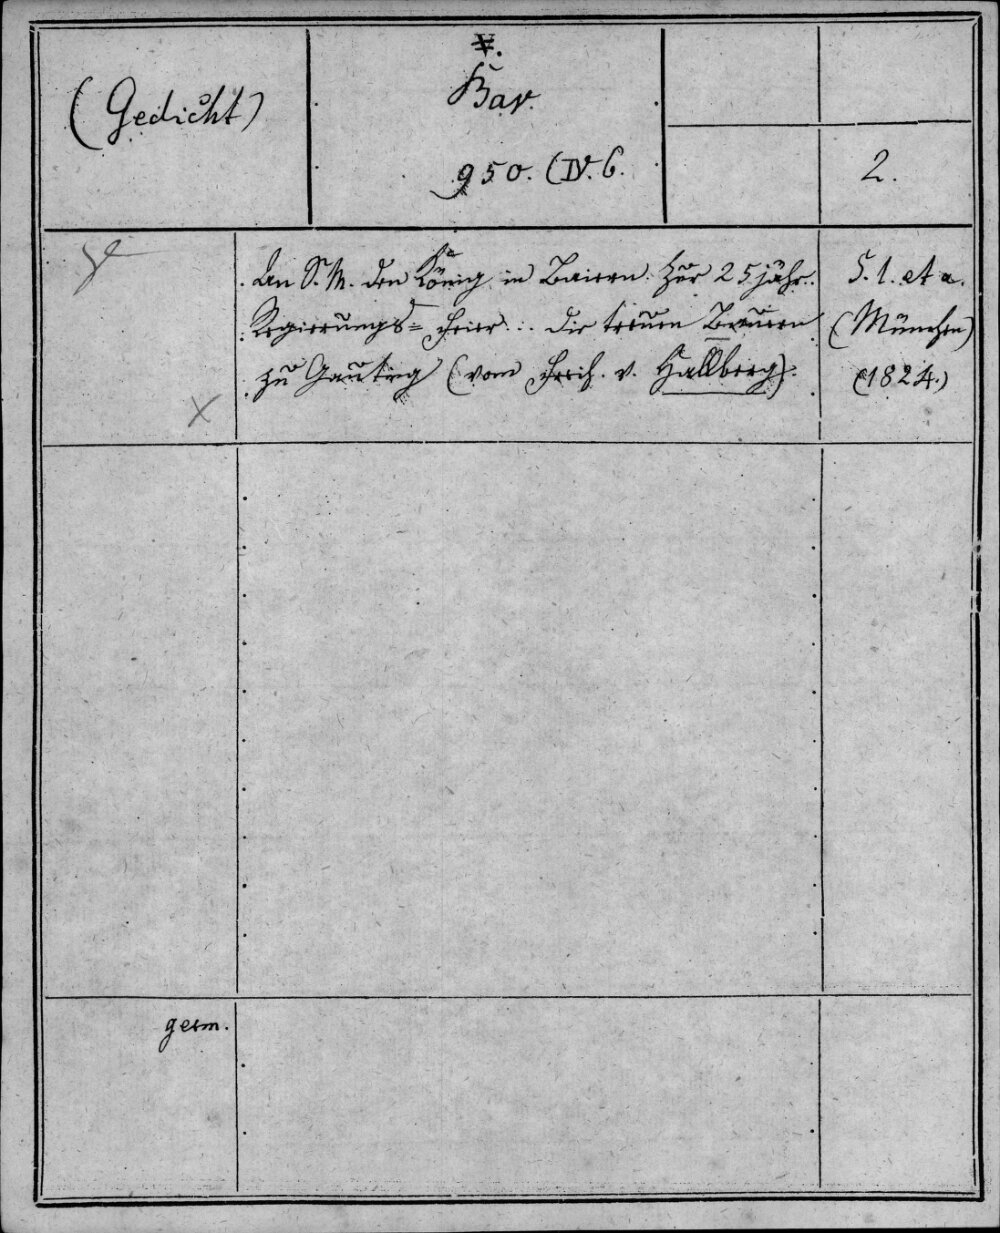 (Gedicht)
Bav.
950. (IV. 6.
2.
An S. M. den König in Baiern. Zur 25jähr.
Regierungs=Feier... Die treuen Bauern
zu Gauting (vom Freih. v. Hallberg).
S. l. et a.
(München)
(1824.)
germ.